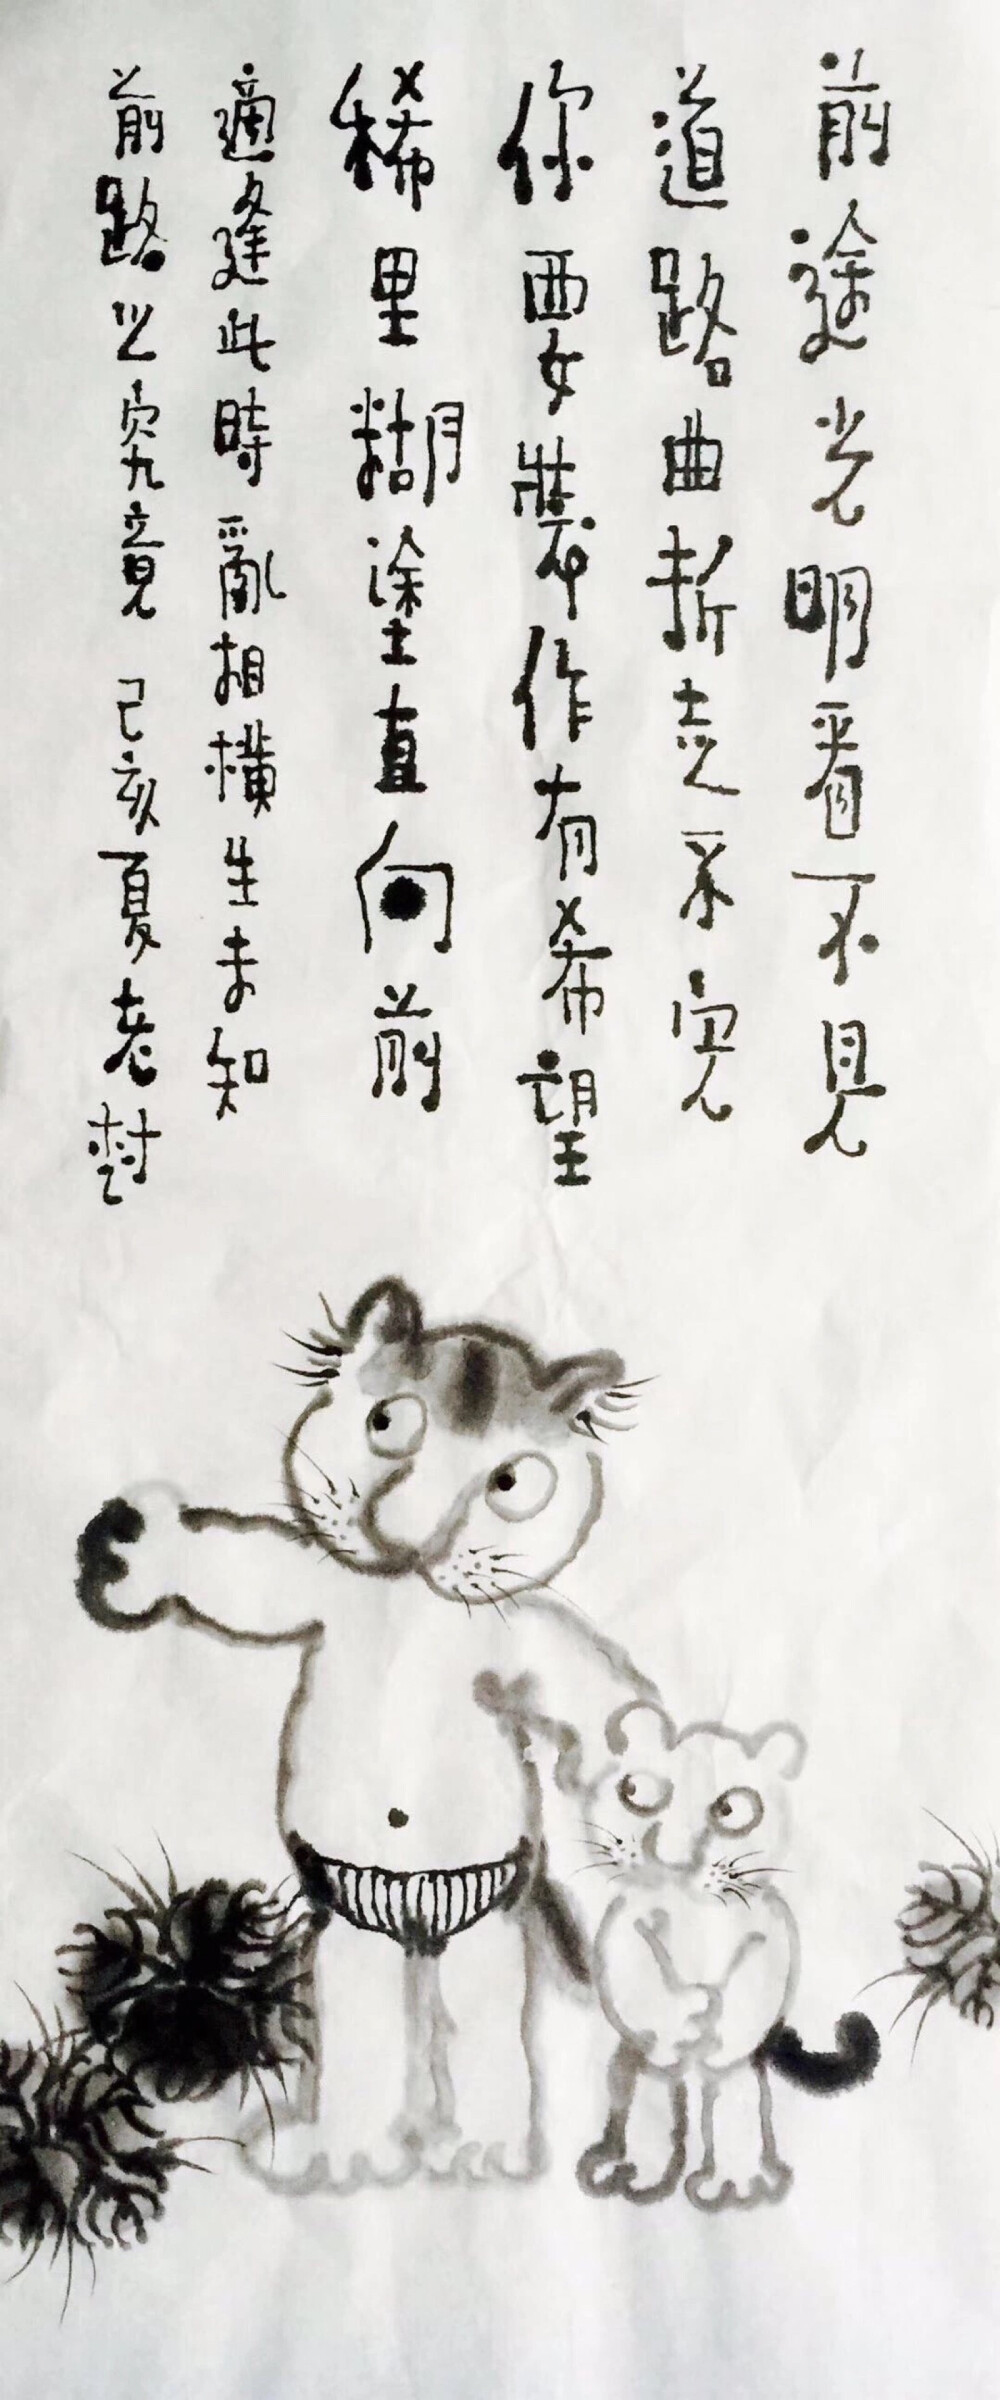 前途光明看不見
道路曲折走不完
你要裝作有希望
稀里糊塗直向前
適逢此時亂相橫生未知
前路之究竟 己亥夏老村